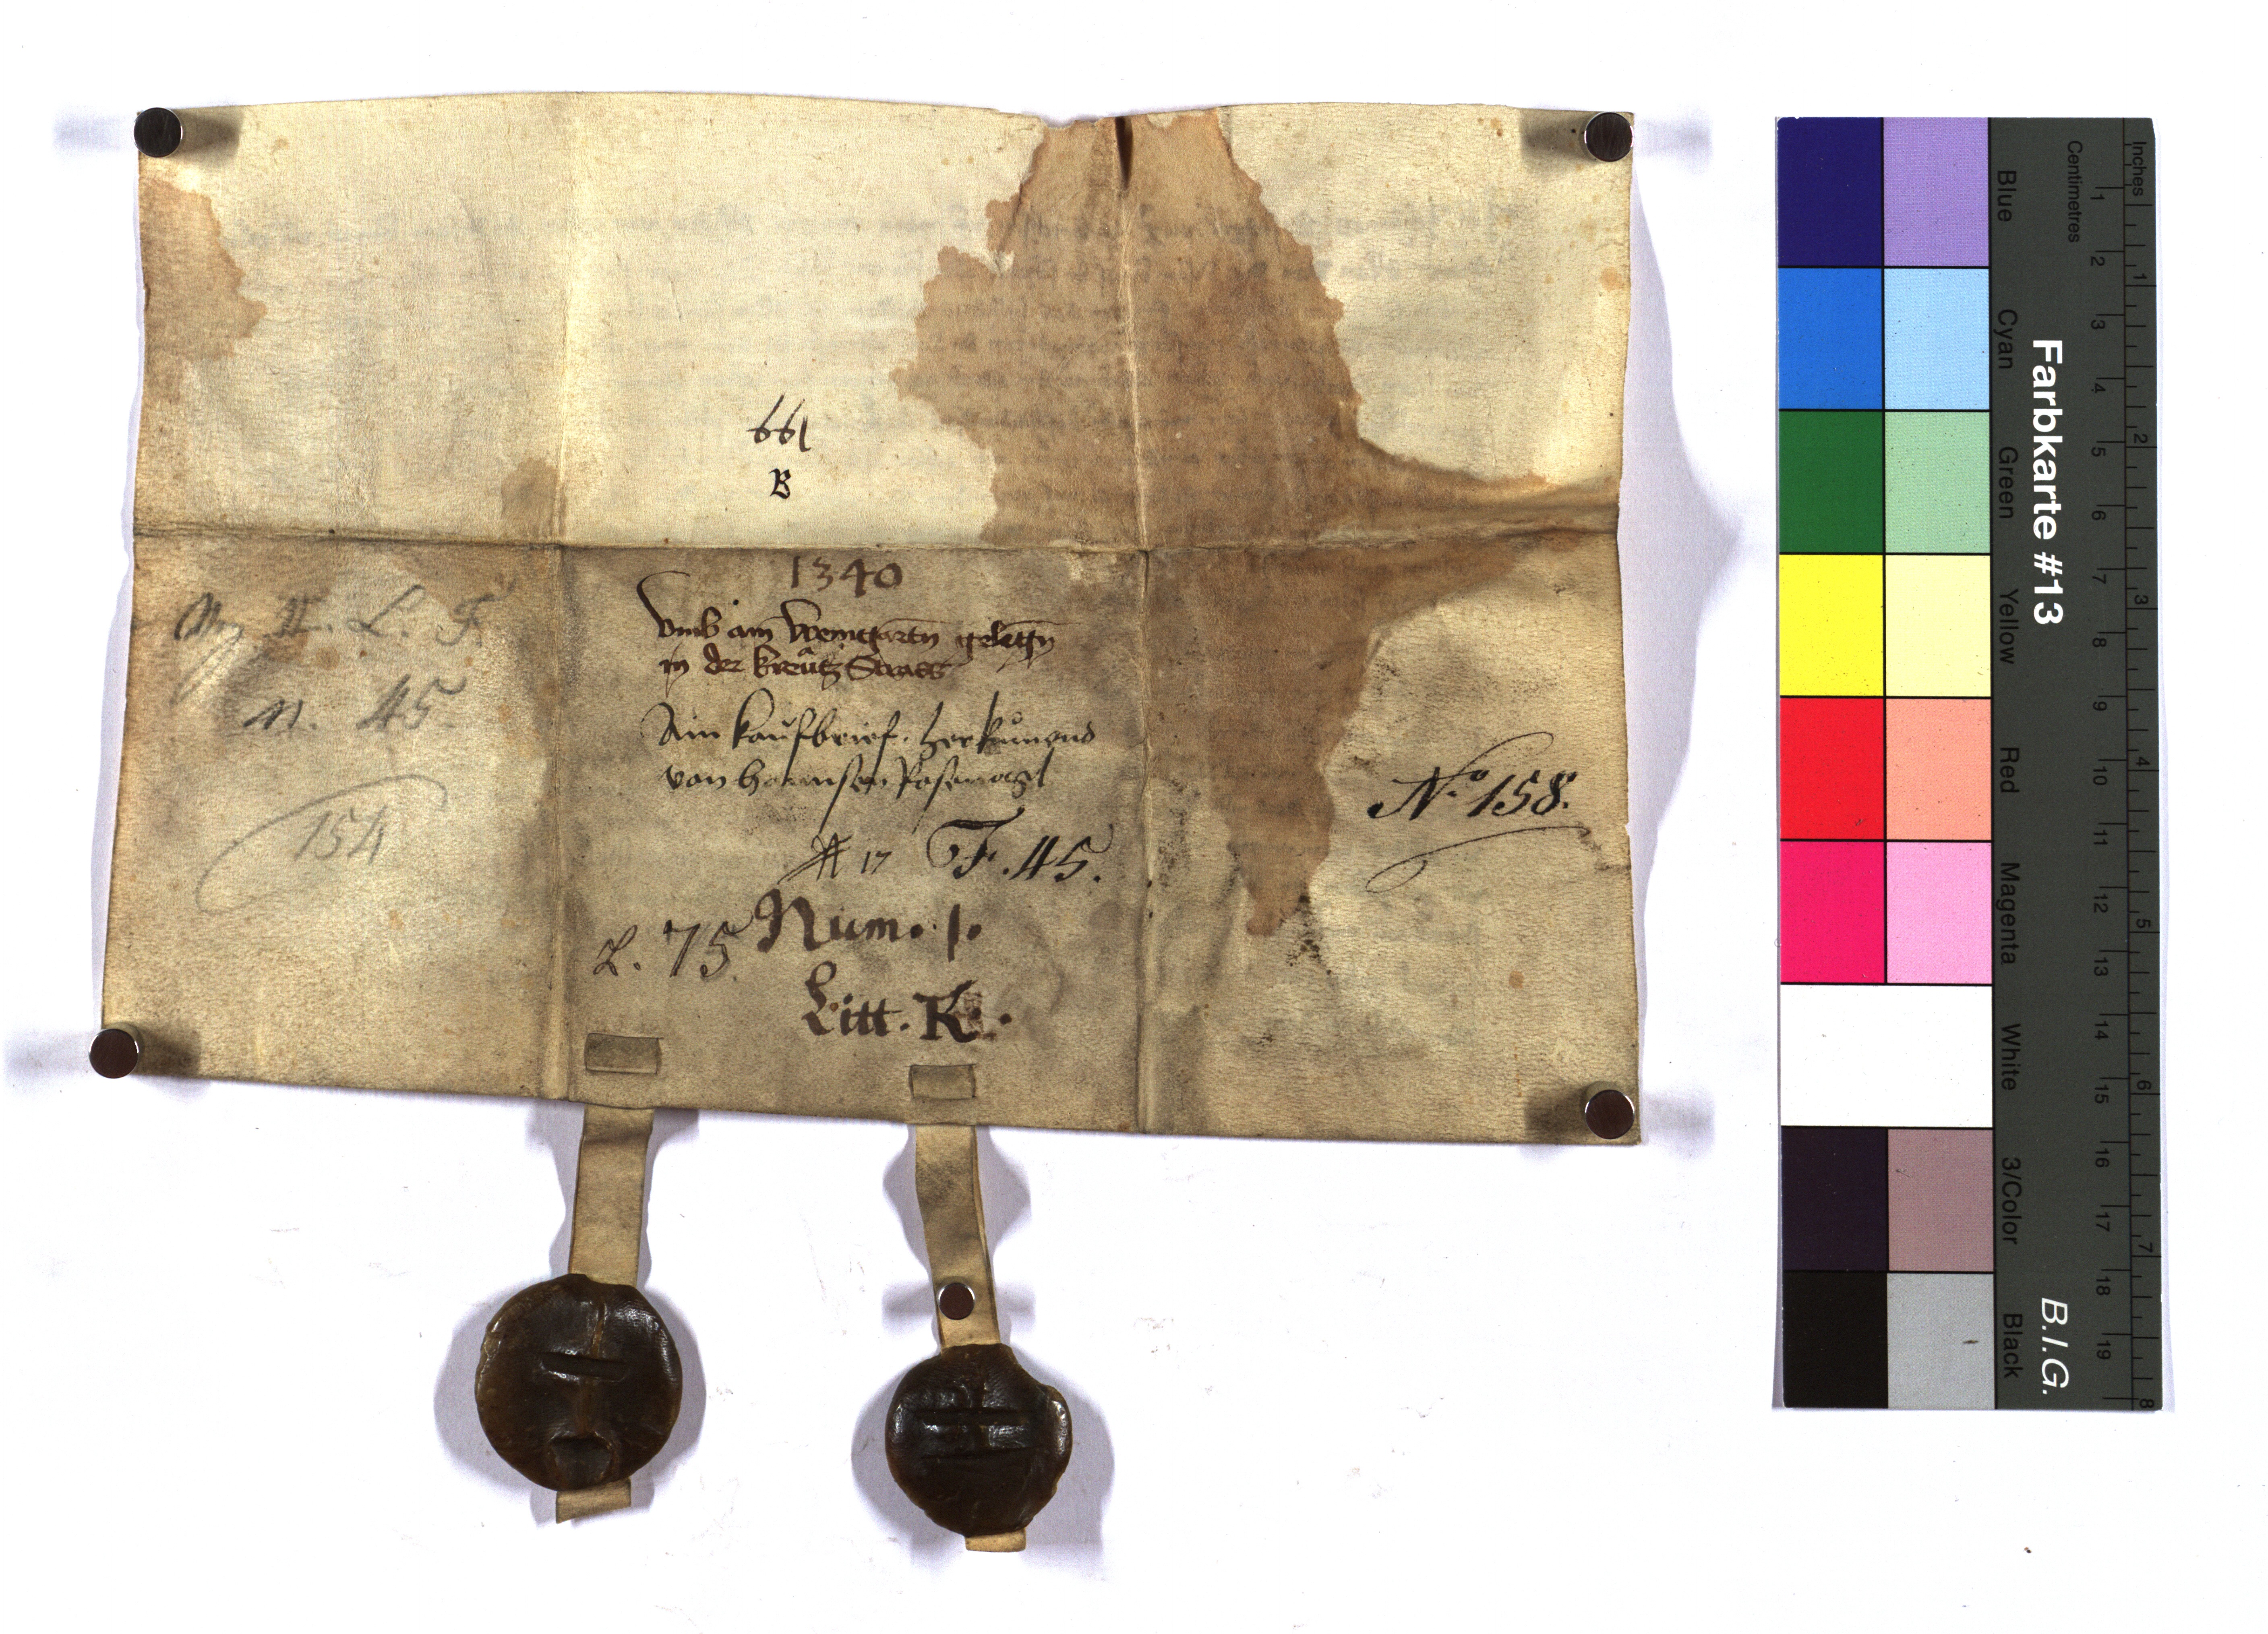 661
B
1340
Vmb ain Weingartn gelegn
in der Kreutz Strass
Ain kaufbrief. herkumend
von hannsen
# 17 F. 45.
L. 75. Num. 1.
Litt. K.
N. L. F.
n. 45.
154
No 158.
Farbkarte #13
B.I.G.
Blue Cyan Green Yellow Red Magenta White 3/Color Black
Centimetres
1 2 3 4 5 6 7 8 9 10 11 12 13 14 15 16 17 18 19
Inches
1 2 3 4 5 6 7 8